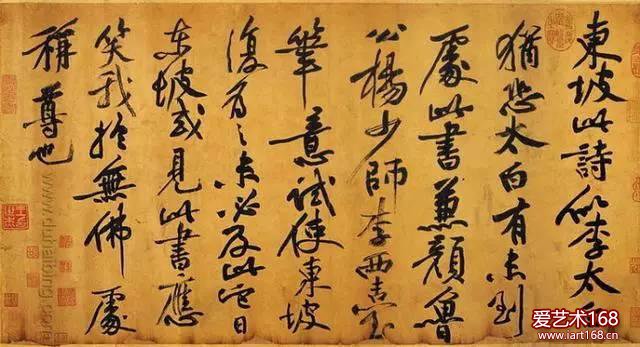 東坡此詩似李太白
猶恐太白有未到
處此書兼顏魯
公楊少師李西臺
筆意試使東坡
復為之未必及此它日
東坡或見此書應
笑我於無佛處
稱尊也
爱艺术168
www.iart168.com